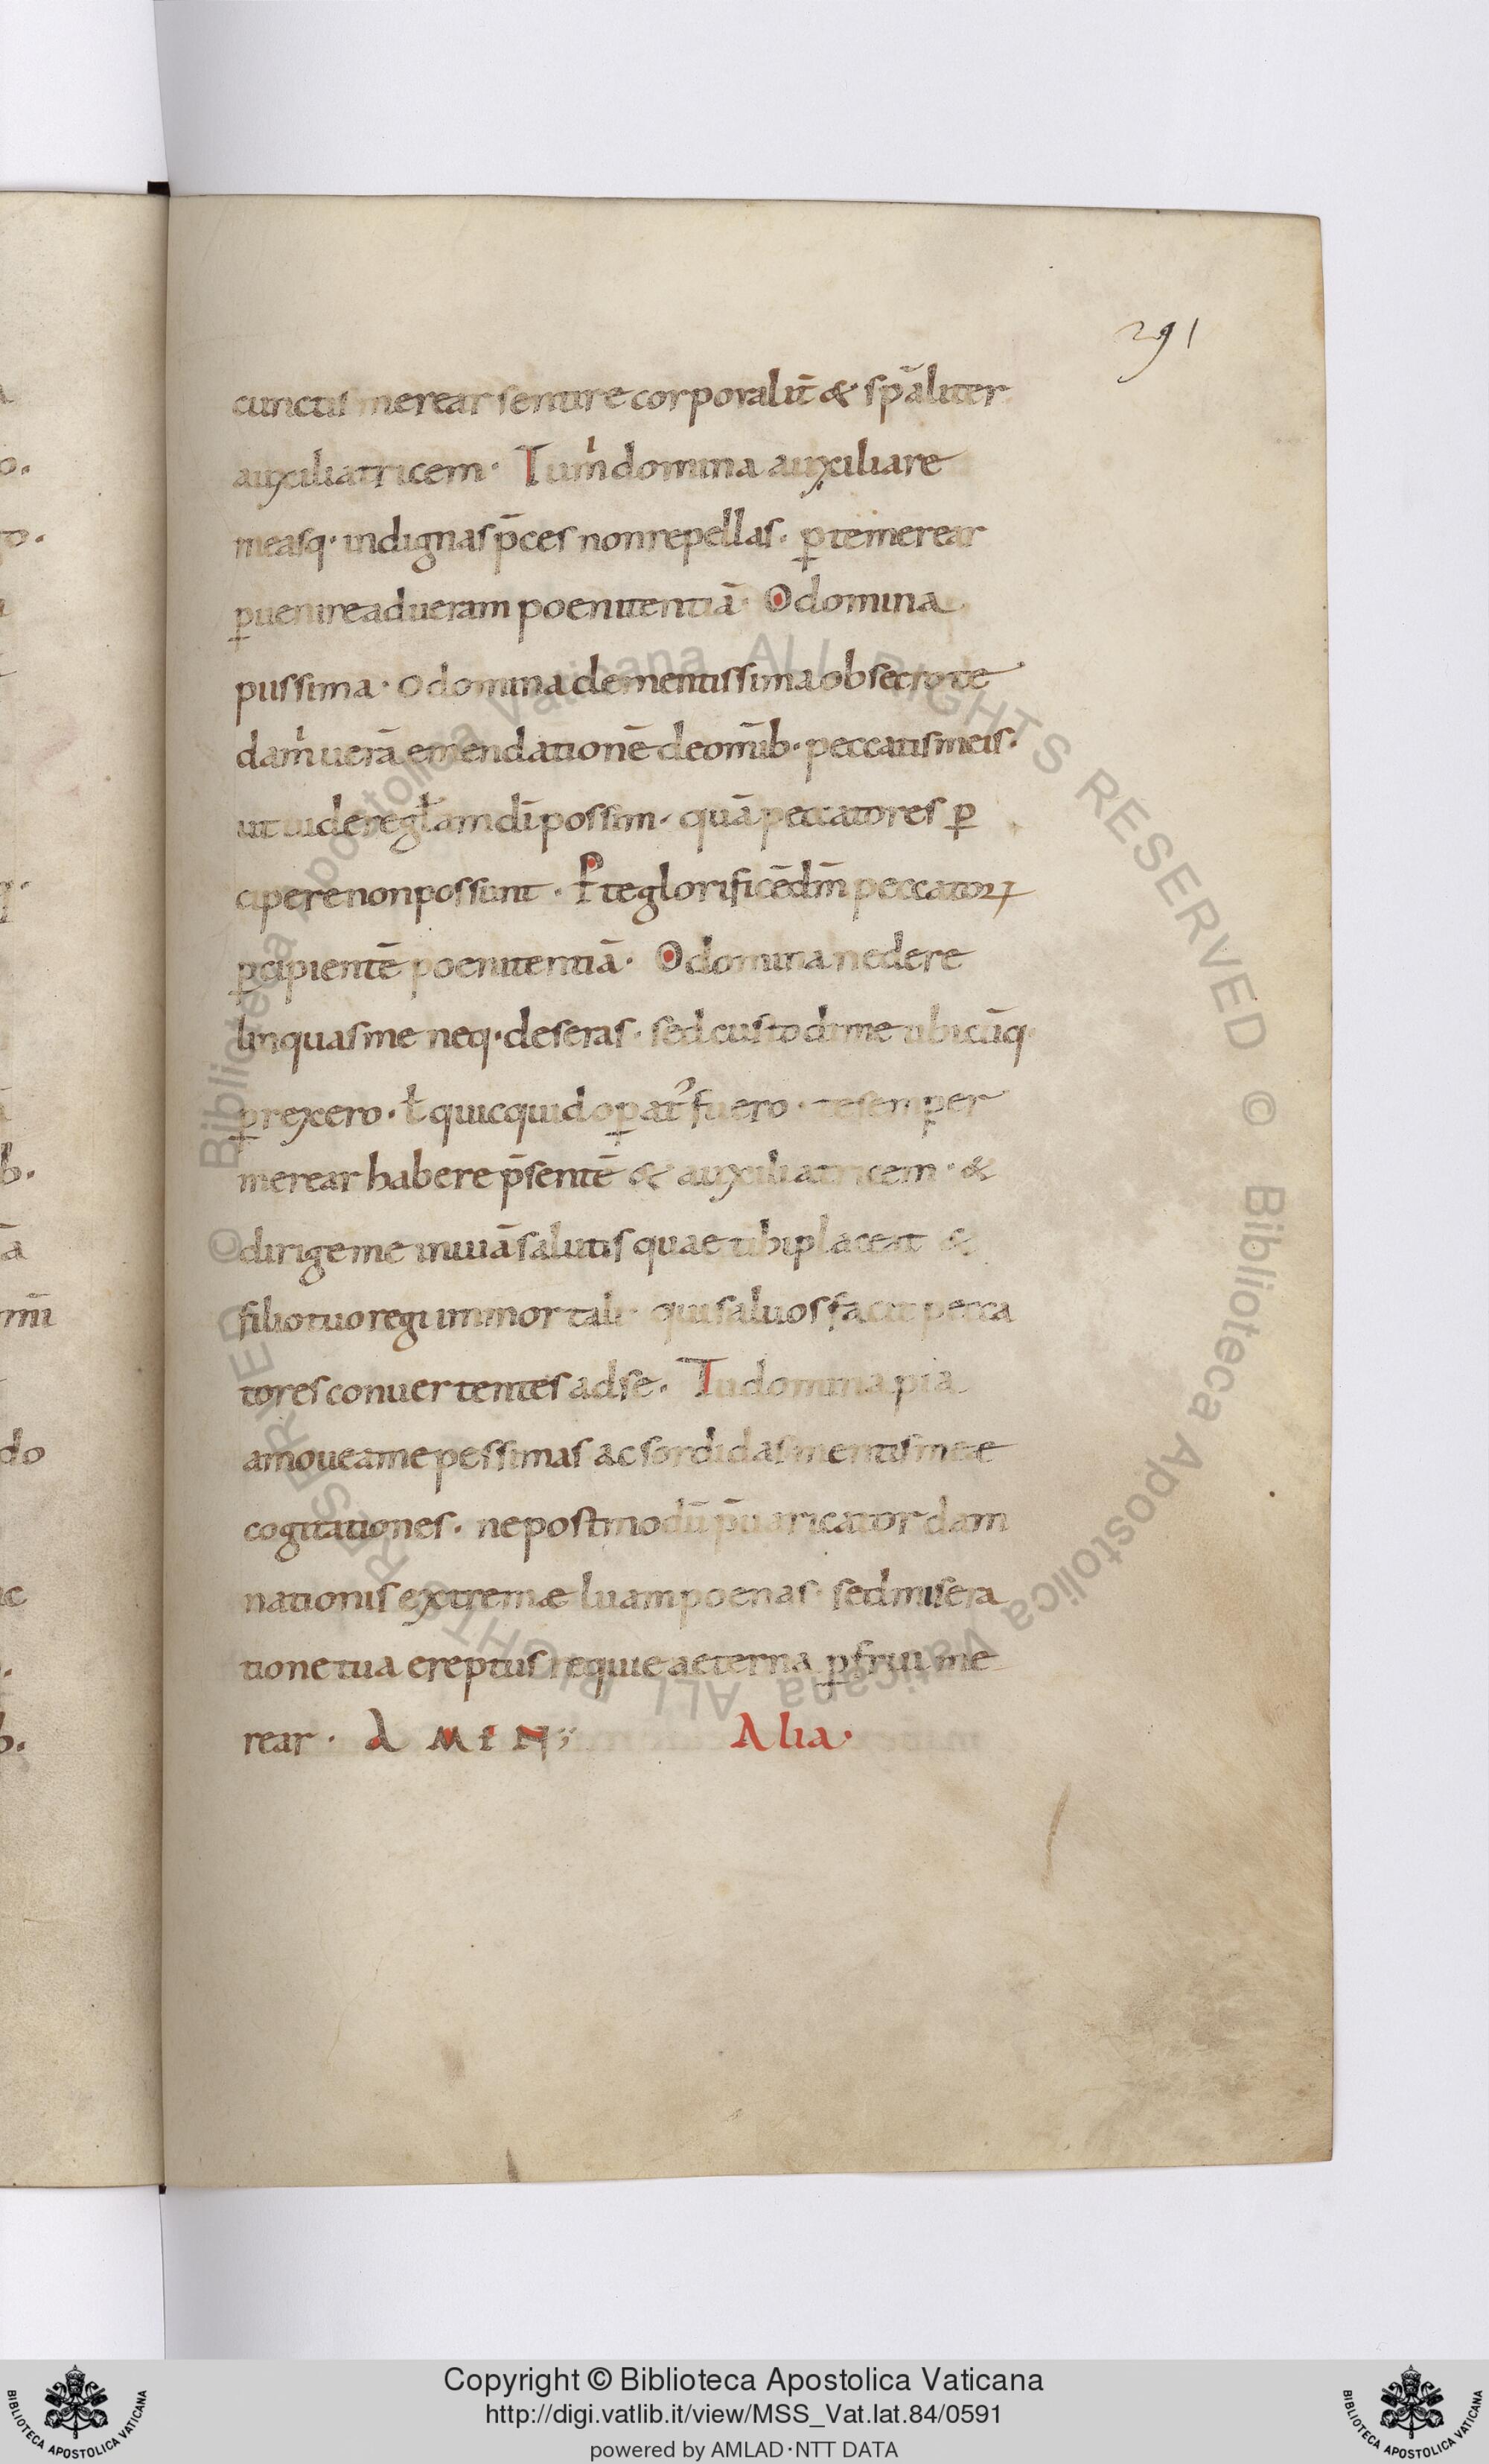 291
cunctis merear sentire corporalit̄ & sp̄aliter
auxiliatricem · Tu m̍ domina auxiliare
measq· indignas p̄ces non repellas · ꝑ te merear
ꝑuenire ad ueram poenitentiā · O domina
piissima · o domina clementissima obsecro te
da m̍ uerā emendationē de om̄ib· peccatis meis ·
ut uidere gl̄am dī possim · quā peccatores ꝑ
cipere non possunt · Per te glorificē dm̄ peccatoꝝ
ꝑcipientē poenitentiā · O domina ne dere
linquas me neq· deseras · sed custodi me ubicūq·
ꝑrexero · ł quicquid oꝑat᾽ fuero · te semper
merear habere p̄sentē & auxiliatricem · &
dirige me in uiā salutis quae tibi placeat &
filio tuo regi immortali · qui saluos facit pecca
tores conuertentes ad se · Tu domina pia
amoue a me pessimas ac sordidas mentis meae
cogitationes · ne postmodū p̄uaricator dam
nationis extremæ luam poenas · sed misera
tione tua ereptus requie aeterna ꝑfrui me
rear · AMEN ;
Alia ·
© Biblioteca Apostolica Vaticana ALL RIGHTS RESERVED © Biblioteca Apostolica Vaticana ALL RIGHTS RESERVED
BIBLIOTECA APOSTOLICA VATICANA
Copyright © Biblioteca Apostolica Vaticana
http://digi.vatlib.it/view/MSS_Vat.lat.84/0591
powered by AMLAD·NTT DATA
BIBLIOTECA APOSTOLICA VATICANA